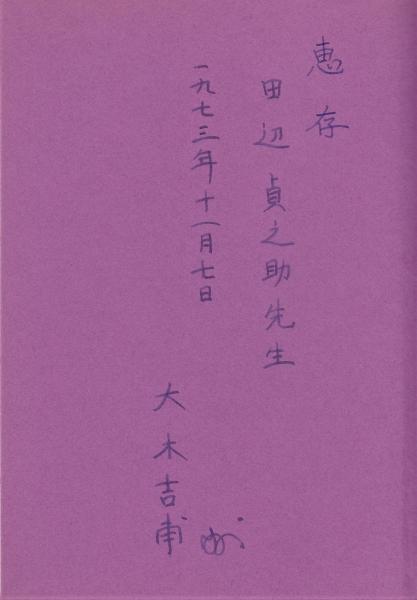 恵存
田辺貞之助先生
一九七三年十一月七日
大木吉甫